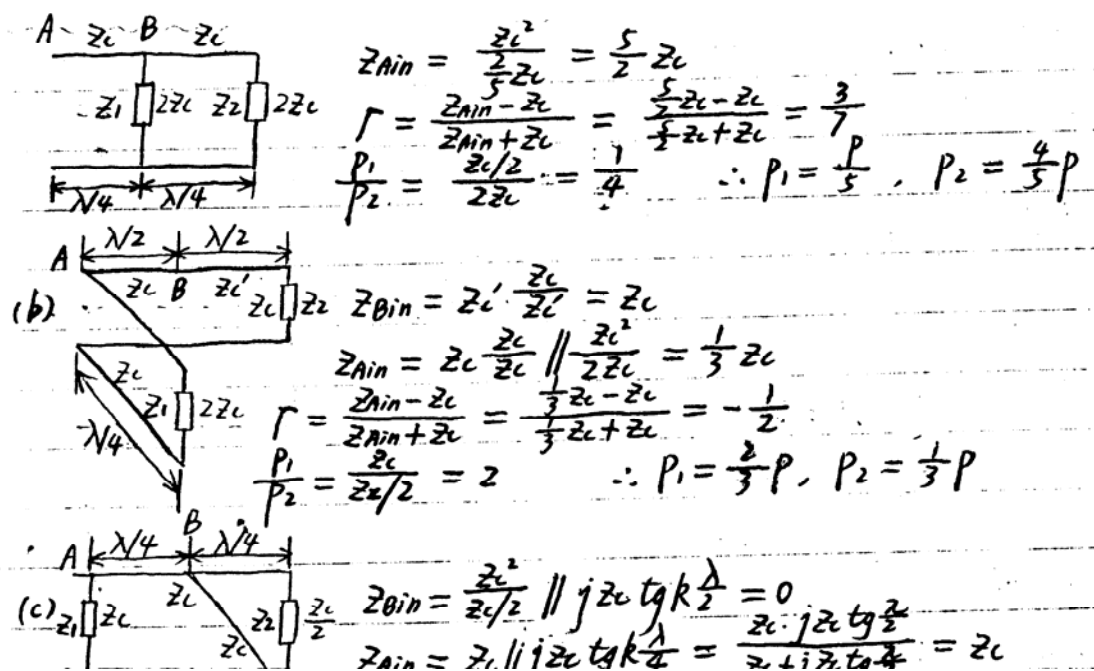 A Zc B Zc
Z1 2Zc Z2 2Zc
λ/4 λ/4
Z_Ain = Zc² / (2/5 Zc) = 5/2 Zc
Γ = (Z_Ain - Zc) / (Z_Ain + Zc) = (5/2 Zc - Zc) / (5/2 Zc + Zc) = 3/7
P1/P2 = (Zc/2) / (2Zc) = 1/4 ∴ P1 = P/5 , P2 = 4/5 P
λ/2 λ/2
A Zc B Zc' Zc Z2
(b) Z_Bin = Zc' · Zc/Zc' = Zc
Zc Z1 2Zc
λ/4
Z_Ain = Zc Zc/Zc // Zc²/2Zc = 1/3 Zc
Γ = (Z_Ain - Zc) / (Z_Ain + Zc) = (1/3 Zc - Zc) / (1/3 Zc + Zc) = -1/2
P1/P2 = Zc / (Zc/2) = 2 ∴ P1 = 2/3 P, P2 = 1/3 P
A λ/4 B λ/4
(c) Z1 Zc Zc Zc Z2 Zc/2
Z_Bin = Zc² / (Zc/2) // jZc tg k λ/2 = 0
Z_Ain = Zc // jZc tg k λ/4 = (Zc · jZc tg π/2) / (Zc + jZc tg π/2) = Zc